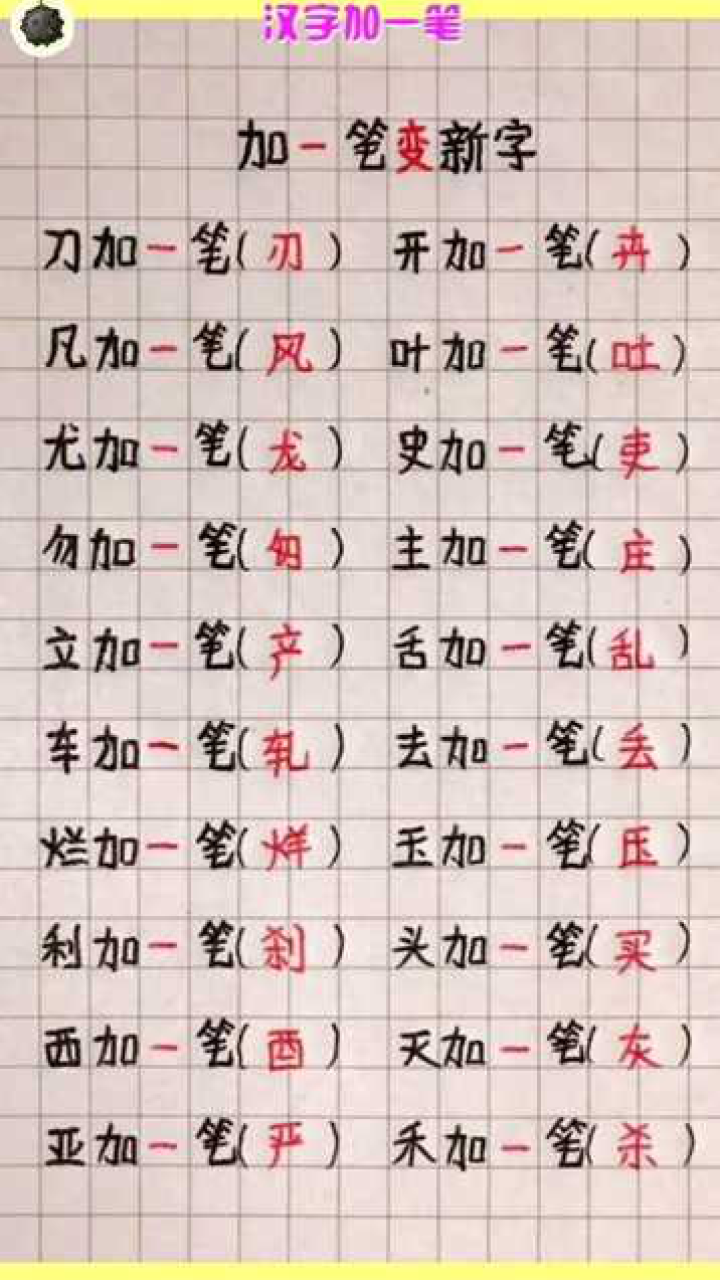 汉字加一笔
加一笔变新字
刀加一笔(刃) 开加一笔(卉)
凡加一笔(风) 叶加一笔(吐)
尤加一笔(龙) 史加一笔(吏)
勿加一笔(匆) 主加一笔(庄)
立加一笔(产) 舌加一笔(乱)
车加一笔(轧) 去加一笔(丢)
烂加一笔(烊) 玉加一笔(压)
利加一笔(刹) 头加一笔(买)
西加一笔(酉) 灭加一笔(灰)
亚加一笔(严) 禾加一笔(杀)